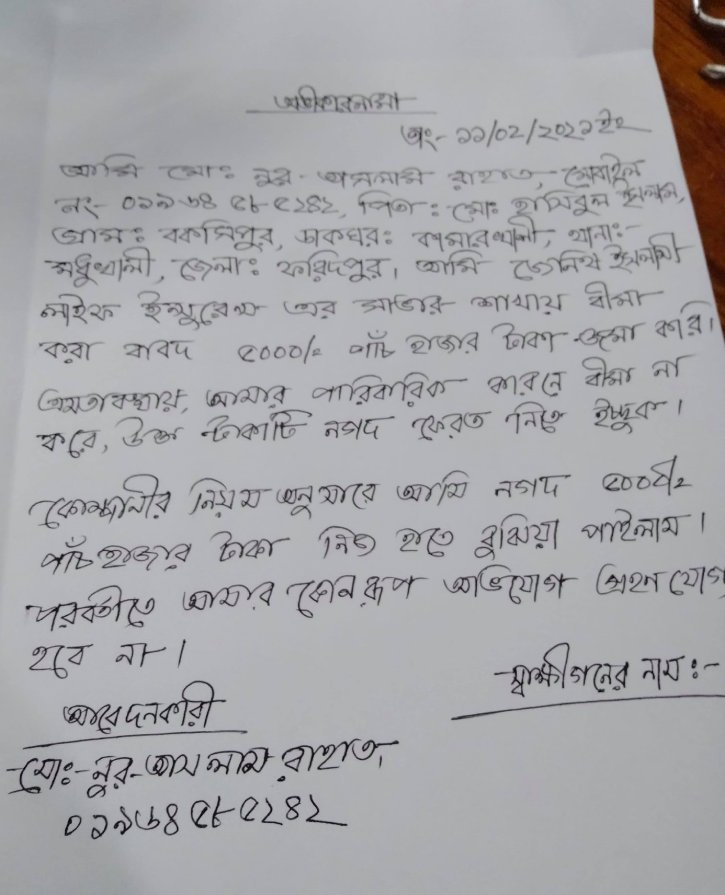 অঙ্গিকারনামা
তাং- ১১/০২/২০২১ইং
আমি মোঃ নুর- আসলাম রাহাত, মোবাইল
নং- ০১৯৬৪ ৫৮ ৫২৪২, পিতা : মোঃ হাসিবুল ইসলাম,
গ্রাম : বকসিপুর, ডাকঘর: কামারখালী, থানা:-
মধুখালী, জেলা : ফরিদপুর। আমি জেনিথ ইসলামী
লাইফ ইন্সুরেন্স এর সাভার শাখায় বীমা
করা বাবদ ৫০০০/= পাঁচ হাজার টাকা জমা করি।
এমতাবস্থায়, আমার পারিবারিক কারনে বীমা না
করে, উক্ত টাকাটি নগদ ফেরত নিতে ইচ্ছুক।
কোম্পানীর নিয়ম অনুসারে আমি নগদ ৫০০০/=
পাঁচ হাজার টাকা নিজ হাতে বুঝিয়া পাইলাম।
পরবর্তীতে আমার কোন রূপ অভিযোগ গ্রহন যোগ্য
হবে না।
স্বাক্ষীগনের নাম :-
আবেদনকারী
মোঃ- নুর- আসলাম রাহাত,
০১৯৬৪ ৫৮ ৫২৪২